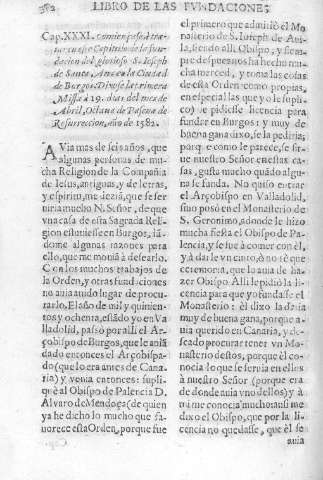 382 LIBRO DE LAS FVNDACIONES
Cap. XXXI. Comiençase à tra-
tar en este Capitulo de la fun-
dacion del glorioso S. Ioseph
de Santa Ana en la Ciudad
de Burgos. Dixose la primera
Missa à 19. dias del mes de
Abril, Octaua de Pascua de
Resurreccion, año de 1582.
AVia mas de seis años, que
algunas personas de mu-
cha Religion de la Compañia
de Iesus, antiguas, y de letras,
y espiritu, me dezia, que se ser-
uiria mucho N. Señor, de que
vna casa de esta Sagrada Reli-
gion estuuiesse en Burgos, iã-
dome algunas razones para
ello, que me mouiã à desearlo.
Con los muchos trabajos de
la Orden, y otras fundaciones
no auia auido lugar de procu-
rarlo. El año de mil y quinien-
tos y ochenta, estãdo yo en Va
lladolid, passò por alli el Ar-
çobispo de Burgos, que le auiã
dado entonces el Arçobispa-
do (que lo era antes de Cana-
ria) y venia entonces: supli-
què al Obispo de Palencia D.
Aluaro de Mendoça (de quien
ya he dicho lo mucho que fa-
uorece esta Orden, porque fue
el primero que admitiò el Mo
nasterio de S. Ioseph de Aui-
la, siendo alli Obispo, y siem-
pre despues nos ha hecho mu-
cha merced, y toma las cosas
de esta Orden como propias,
en especial las que yo le supli-
co) le pidiesse licencia para
fundar en Burgos: y muy de
buena gana dixo, se la pediria;
porque como le parece, se sir-
ue nuestro Señor en estas ca-
sas, gusta mucho quãdo algu-
na se funda. No quiso entrar
el Arçobispo en Valladolid,
sino posò en el Monasterio de
S. Geronimo, adonde le hizo
mucha fiesta el Obispo de Pa-
lencia, y se fue à comer con èl,
y à darle vn cinto, ò no sè què
ceremonia, que lo auia de ha-
zer Obispo. Alli le pidiò la li-
cencia para que yo fundasse el
Monasterio: èl dixo la daria
muy de buena gana, porque a-
uia querido en Canaria, y de-
seado procurar tener vn Mo-
nasterio destos, porque èl co-
nocia lo que se seruia en ellos
à nuestro Señor (porque era
de donde auia vno dellos) y à
mi me conocia mucho: assi me
dixo el Obispo, que por la li-
cencia no quedasse, que èl se
auia